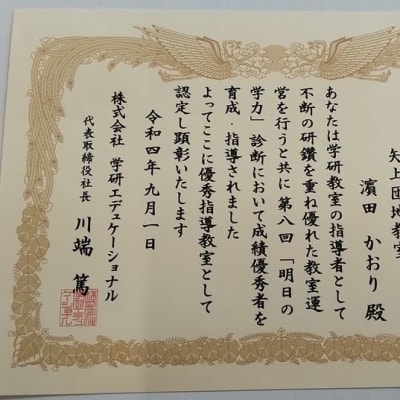 矢上団地教室
濵田 かおり 殿
あなたは学研教室の指導者として
不断の研鑽を重ね優れた教室運
営を行うと共に 第八回 「明日の
学力」 診断において成績優秀者を
育成・指導されました
よってここに優秀指導教室として
認定し顕彰いたします
令和四年九月一日
株式会社 学研エデュケーショナル
代表取締役社長 川端 篤